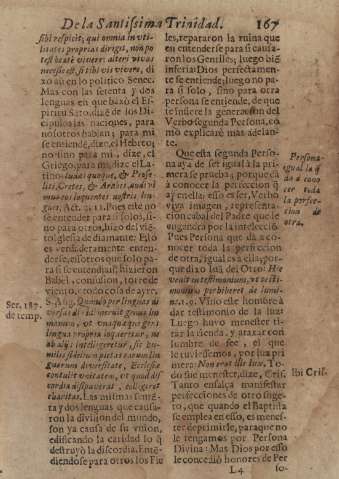 De la Santissima Trinidad. 167
sibi respicit, qui omnia in vti-
litates proprias dirigit, non po
test beatè vivere: alteri vivas
necesse est, si tibi vis vivere, di
xo aù en lo politico Senec.
Mas con las setenta y dos
lenguas en que baxò el Es-
piritu Sato, dizẽ de los Dis-
cipulos las naciones, para
nosotros hablan; para mi
se entiende, dizo, el Hebreo;
no sino para mi, dize, el
Griego, para mi, dize el La-
tino:
lytes, Cretes, & Arabes, audivi
mus eos loquentes nostris lin-
guis, Act. 2. 11. Pues este no
se entender para si solos, si-
no para otros, hizo del vis-
to Iglesia de diamante: Ello
es verdaderamente enten-
derse, essotros que solo pa-
ra si se entendian, hizieron
Babel, confusion, torre de
viento, ò cosa, cosa de ayre,
S. Aug. Quando per linguas di
versas
man
lingua propria loqueretur, ne
ab alijs intelligeretur, sic hu-
miles fidelium pietas earum lin
guarum diversitatẽ, Ecclesiæ
contulit vnitatem, vt quod dis
cordia dissipaverat, colligeret
charitas. Las mismas seten-
ta y dos lenguas que causa-
ron la division del mundo,
son ya causa de su vnion,
edificando la caridad lo q̃
destruyò la discordia. Enten
diendose para otros los Fie
Ser. 187.
de temp.
les, repararon la ruina que
en entenderse para si causa-
ron los Gentiles; luego biẽ
inferia: Dios perfectamen-
te se entiende; luego no pa-
ra si solo, sino para otra
persona se entiende, de que
te infiere la generacion del
Verbo segunda Persona, co-
mo explicarè mas adelan-
te.
Que esta segunda Perso-
na aya de ser igual à la pri-
mera se prueba; porque dà
à conocer la perfeccion q̃
ay en ella: esso es ser, Verbo
viva imagen, representa-
cion cabal del Padre que le
engendra por la intelecciõ.
Pues Persona que dà à co-
nocer toda la perfeccion
de otra, igual es à ella; por-
que dixo Iuã del Otro: Hic
venit in testimonium, vt testi-
monium perhiberet de lumi-
ne. 1. 9. Vino este hombre à
dar testimonio de la luz.
Luego huvo menester ti-
rar la rienda, y atajar con
lumbre de fee, el que
le tuviessemos, por luz pri
mera: Non erat ille lux. To-
do fue menester, dize, Cris.
Tanto ensalça manifestar
perfecciones de otro suge-
to, que quando el Baptista
se emplea en esso, es menes-
ter deprimirle, paraque no
le tengamos por Persona
Divina: Mas Dios por esso
le concediò honores de Per
L4 so-
Persona
igual la q̃
dà à cono
cer toda
la perfec-
cion de
otra.
Ibi Cris.